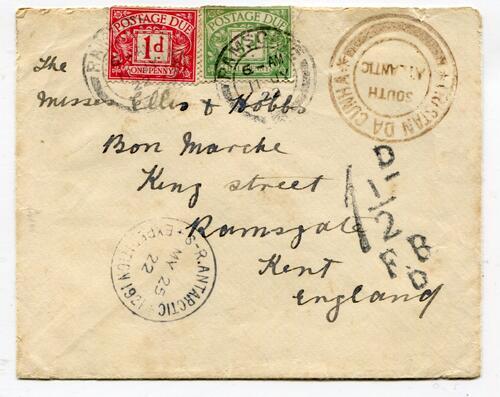 POSTAGE DUE
1d
ONE PENNY
POSTAGE DUE
RAMSG
TRISTAN DA CUNHA
SOUTH
ATLANTIC
The
Misses Ellis & Hobbs
Bon Marche
King street
Ramsgate
Kent
England
D
1
1/2
B
F D
S-R.ANTARCTIC
EXPEDITION 1921
MY 25
22